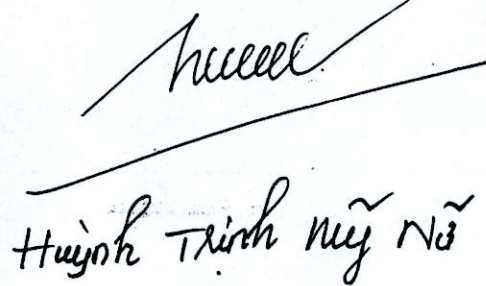 Huỳnh Trịnh Mỹ Nữ